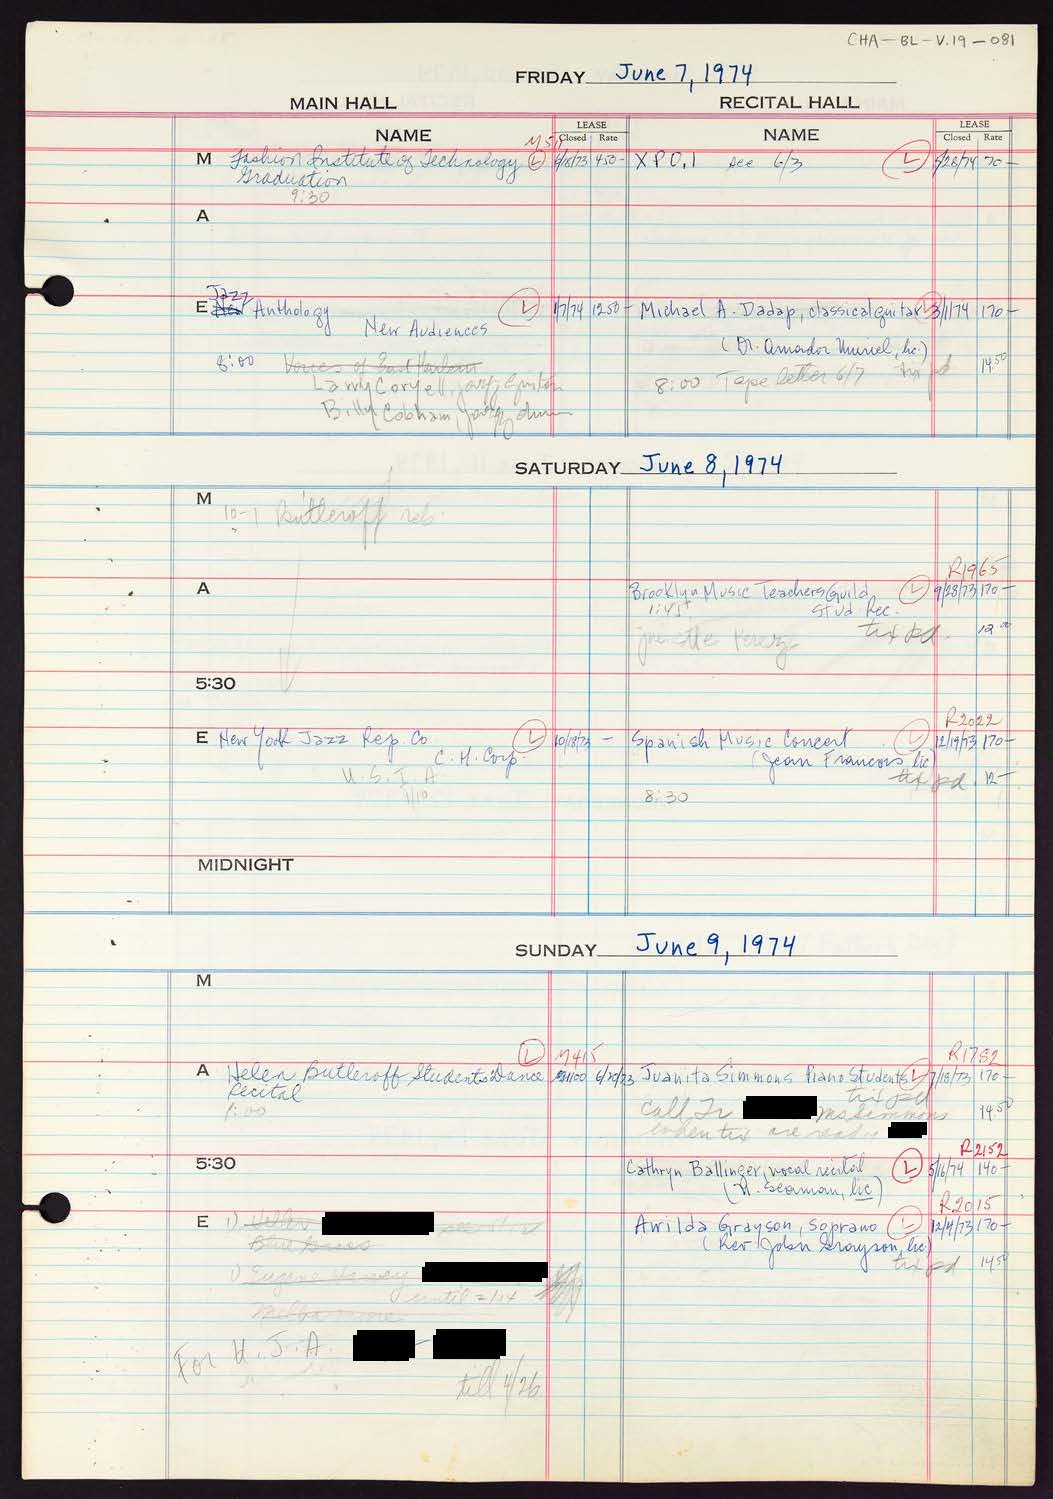 CHA-BL-V.19-081
FRIDAY June 7, 1974
MAIN HALL RECITAL HALL
LEASE LEASE
NAME Closed Rate NAME Closed Rate
M Fashion Institute of Technology L 450- XPO.1 see 6/3 L 70-
Graduation
9:30
A
Jazz
E Anthology L 1/7/74 1250- Michael A. Dadap, classical guitar L 3/1/74 170-
New Audiences
(Dr. Amador Muriel, lic.)
8:00 Voices of East Harlem tix pd 14.50
Larry Coryell, jazz guitar 8:00 Tape letter 6/7
Billy Cobham, jazz drum
SATURDAY June 8, 1974
M
10-1 Butleroff reh.
R1965
A Brooklyn Music Teachers Guild L 9/28/73 170-
1:45 Stud. Rec.
tix pd. 12.00
Perez
5:30
R2022
E New York Jazz Rep. Co. L 10/18/73 - Spanish Music Concert L 12/19/73 170-
C. H. Corp. (Jean Francois, lic)
U.S.I.A. tix pd 12-
1/10 8:30
MIDNIGHT
SUNDAY June 9, 1974
M
L M415 R1782
A Helen Butleroff Students Dance 1100 6/20/73 Juanita Simmons Piano Students L 7/18/73 170-
Recital tix pd
1:00 Call Ms Simmons 14.50
when tix are ready
R2152
5:30 Cathryn Ballinger, vocal recital L 5/16/74 140-
(N. Seaman, lic)
R2015
E 1) Arrilda Grayson, soprano L 12/4/73 170-
Blue (Rev John Grayson, lic.)
1) Eugene tix pd 14.50
until 2/14
Melba Moore
For U.J.A. -
till 4/26